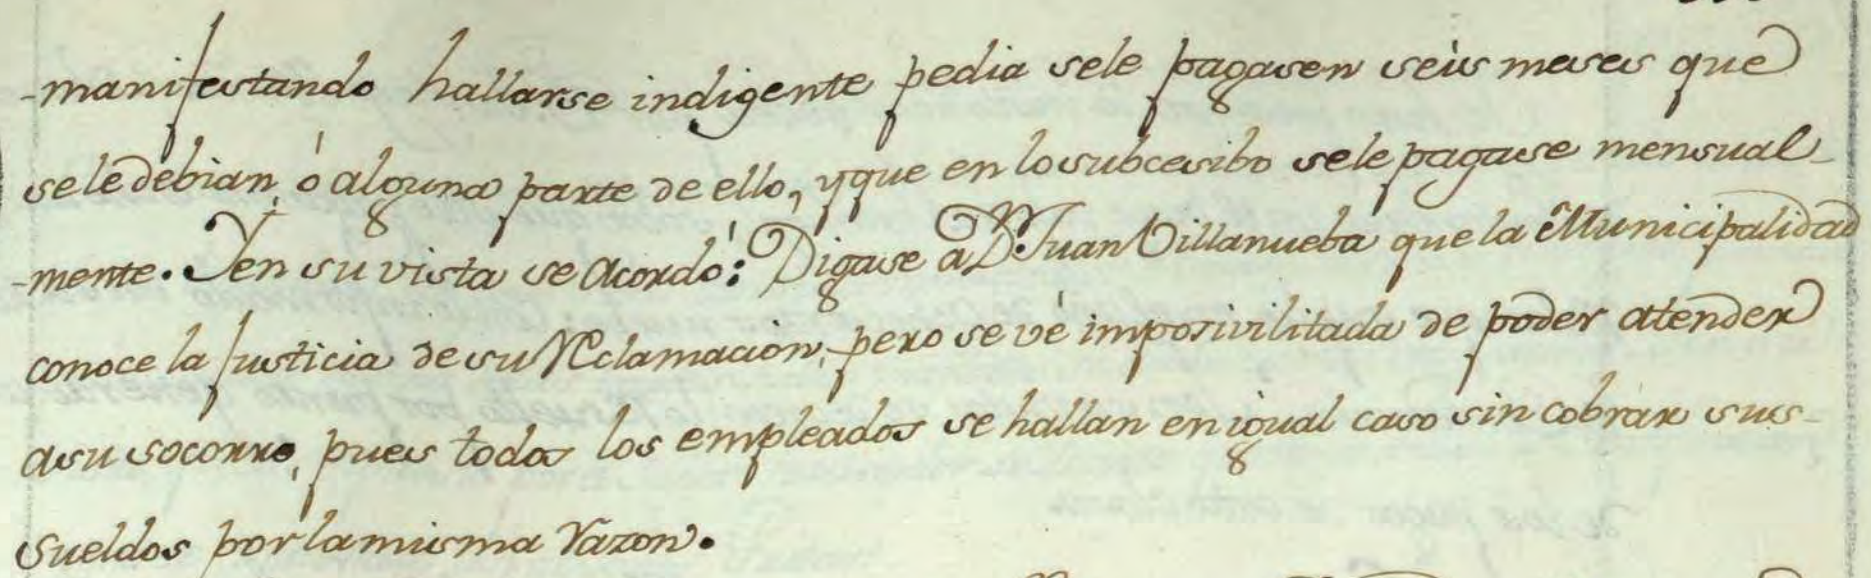 -manifestando hallarse indigente pedia sele pagasen seis meses que
sele debian, ó alguna parte de ello, y que en lo subcesibo sele pagase mensual-
-mente. Y en su vista se acordó: Digase a D. Juan Villanueba que la Municipalidad
conoce la Justicia de su Reclamacion, pero se vé imposivilitada de poder atender
a su socorro, pues todos los empleados se hallan en igual caso sin cobrar sus-
sueldos por la misma razon.